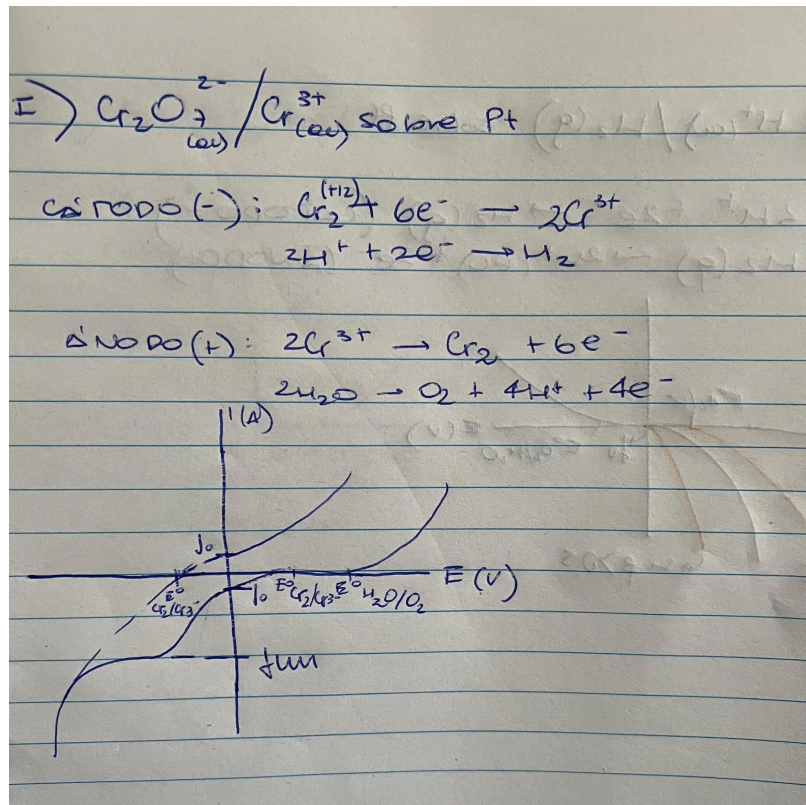 I) Cr₂O₇²⁻(ac) / Cr³⁺(ac) sobre Pt
CÁTODO (-): Cr₂⁽⁺¹²⁾ + 6e⁻ → 2Cr³⁺
2H⁺ + 2e⁻ → H₂
ÁNODO (+): 2Cr³⁺ → Cr₂ + 6e⁻
2H₂O → O₂ + 4H⁺ + 4e⁻
I (A)
Jo
E (V)
E° Cr₂/Cr³⁻
Jo
E° Cr₂/Cr³⁻
E° H₂O/O₂